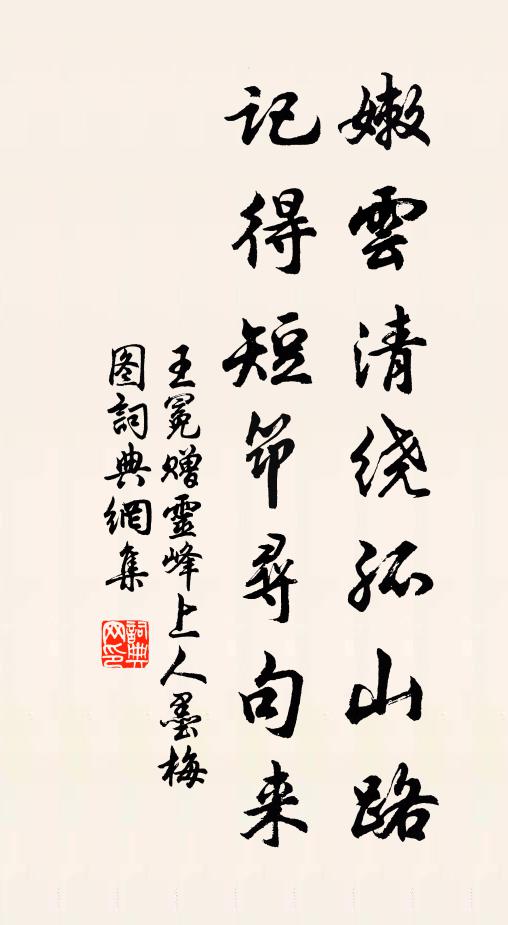 嫩雲清绕孤山路
记得短笻尋句来
王冕赠靈峰上人墨梅
图詞典網集
詞典网印